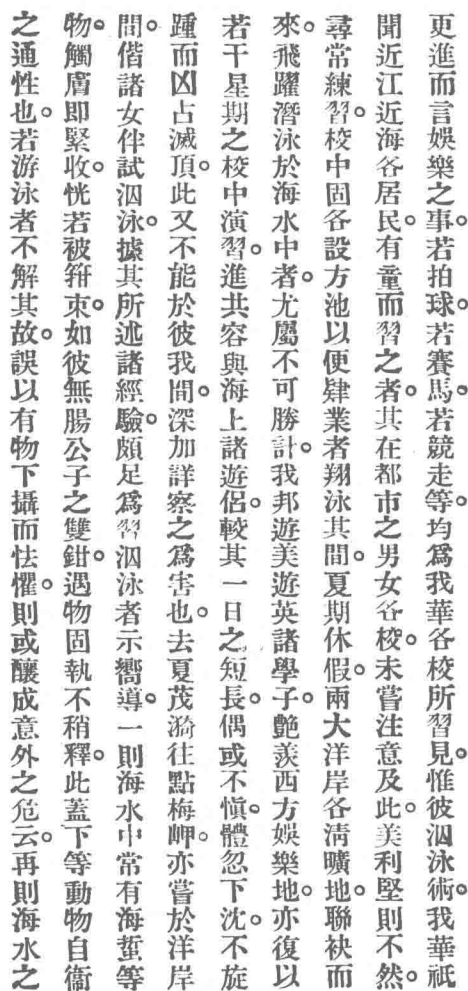 更進而言娛樂之事。若拍球。若賽馬。若競走等。均爲我華各校所習見。惟彼泅泳術。我華祇
聞近江近海各居民。有童而習之者。其在都市之男女各校。未嘗注意及此。美利堅則不然。
尋常練習。校中固各設方池以便肄業者翔泳其間。夏期休假。兩大洋岸各淸曠地。聯袂而
來。飛躍潛泳於海水中者。尤屬不可勝計。我邦遊美遊英諸學子。艶羨西方娛樂地。亦復以
若干星期之校中演習。進共容與海上諸遊侶。較其一日之短長。偶或不愼。體忽下沈。不旋
踵而凶占滅頂。此又不能於彼我間。深加詳察之爲害也。去夏茂漪往點梅岬。亦嘗於洋岸
間。偕諸女伴試泅泳。據其所述諸經驗。頗足爲習泅泳者示嚮導。一則海水中常有海蜇等
物。觸膚即緊收。恍若被箝束。如彼無腸公子之雙鉗。遇物固執不稍釋。此蓋下等動物自衞
之通性也。若游泳者不解其故。誤以有物下攝而怯懼。則或釀成意外之危云。再則海水之